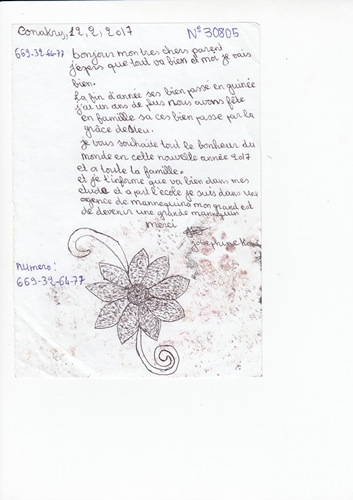 Conakry, 12, 2, 2017
N° 30805
669-32-64-77
bonjour mon tres chers parent
j'espers que tout va bien et moi je vais
bien.
La fin d'année ses bien passé en guinée
j'ai un ans de plus nous avons fête
en famille sa ces bien passe par la
grâce de Dieu.
je vous souhaite tout le bonheur du
monde en cette nouvelle année 2017
et a toute la famille.
et je t'informe que va bien dans mes
etude et apart l'ecole je suis dans une
agence de mannequina mon grand est
de devenir une grande mannequin
Merci
josephine
numero:
669-32-64-77